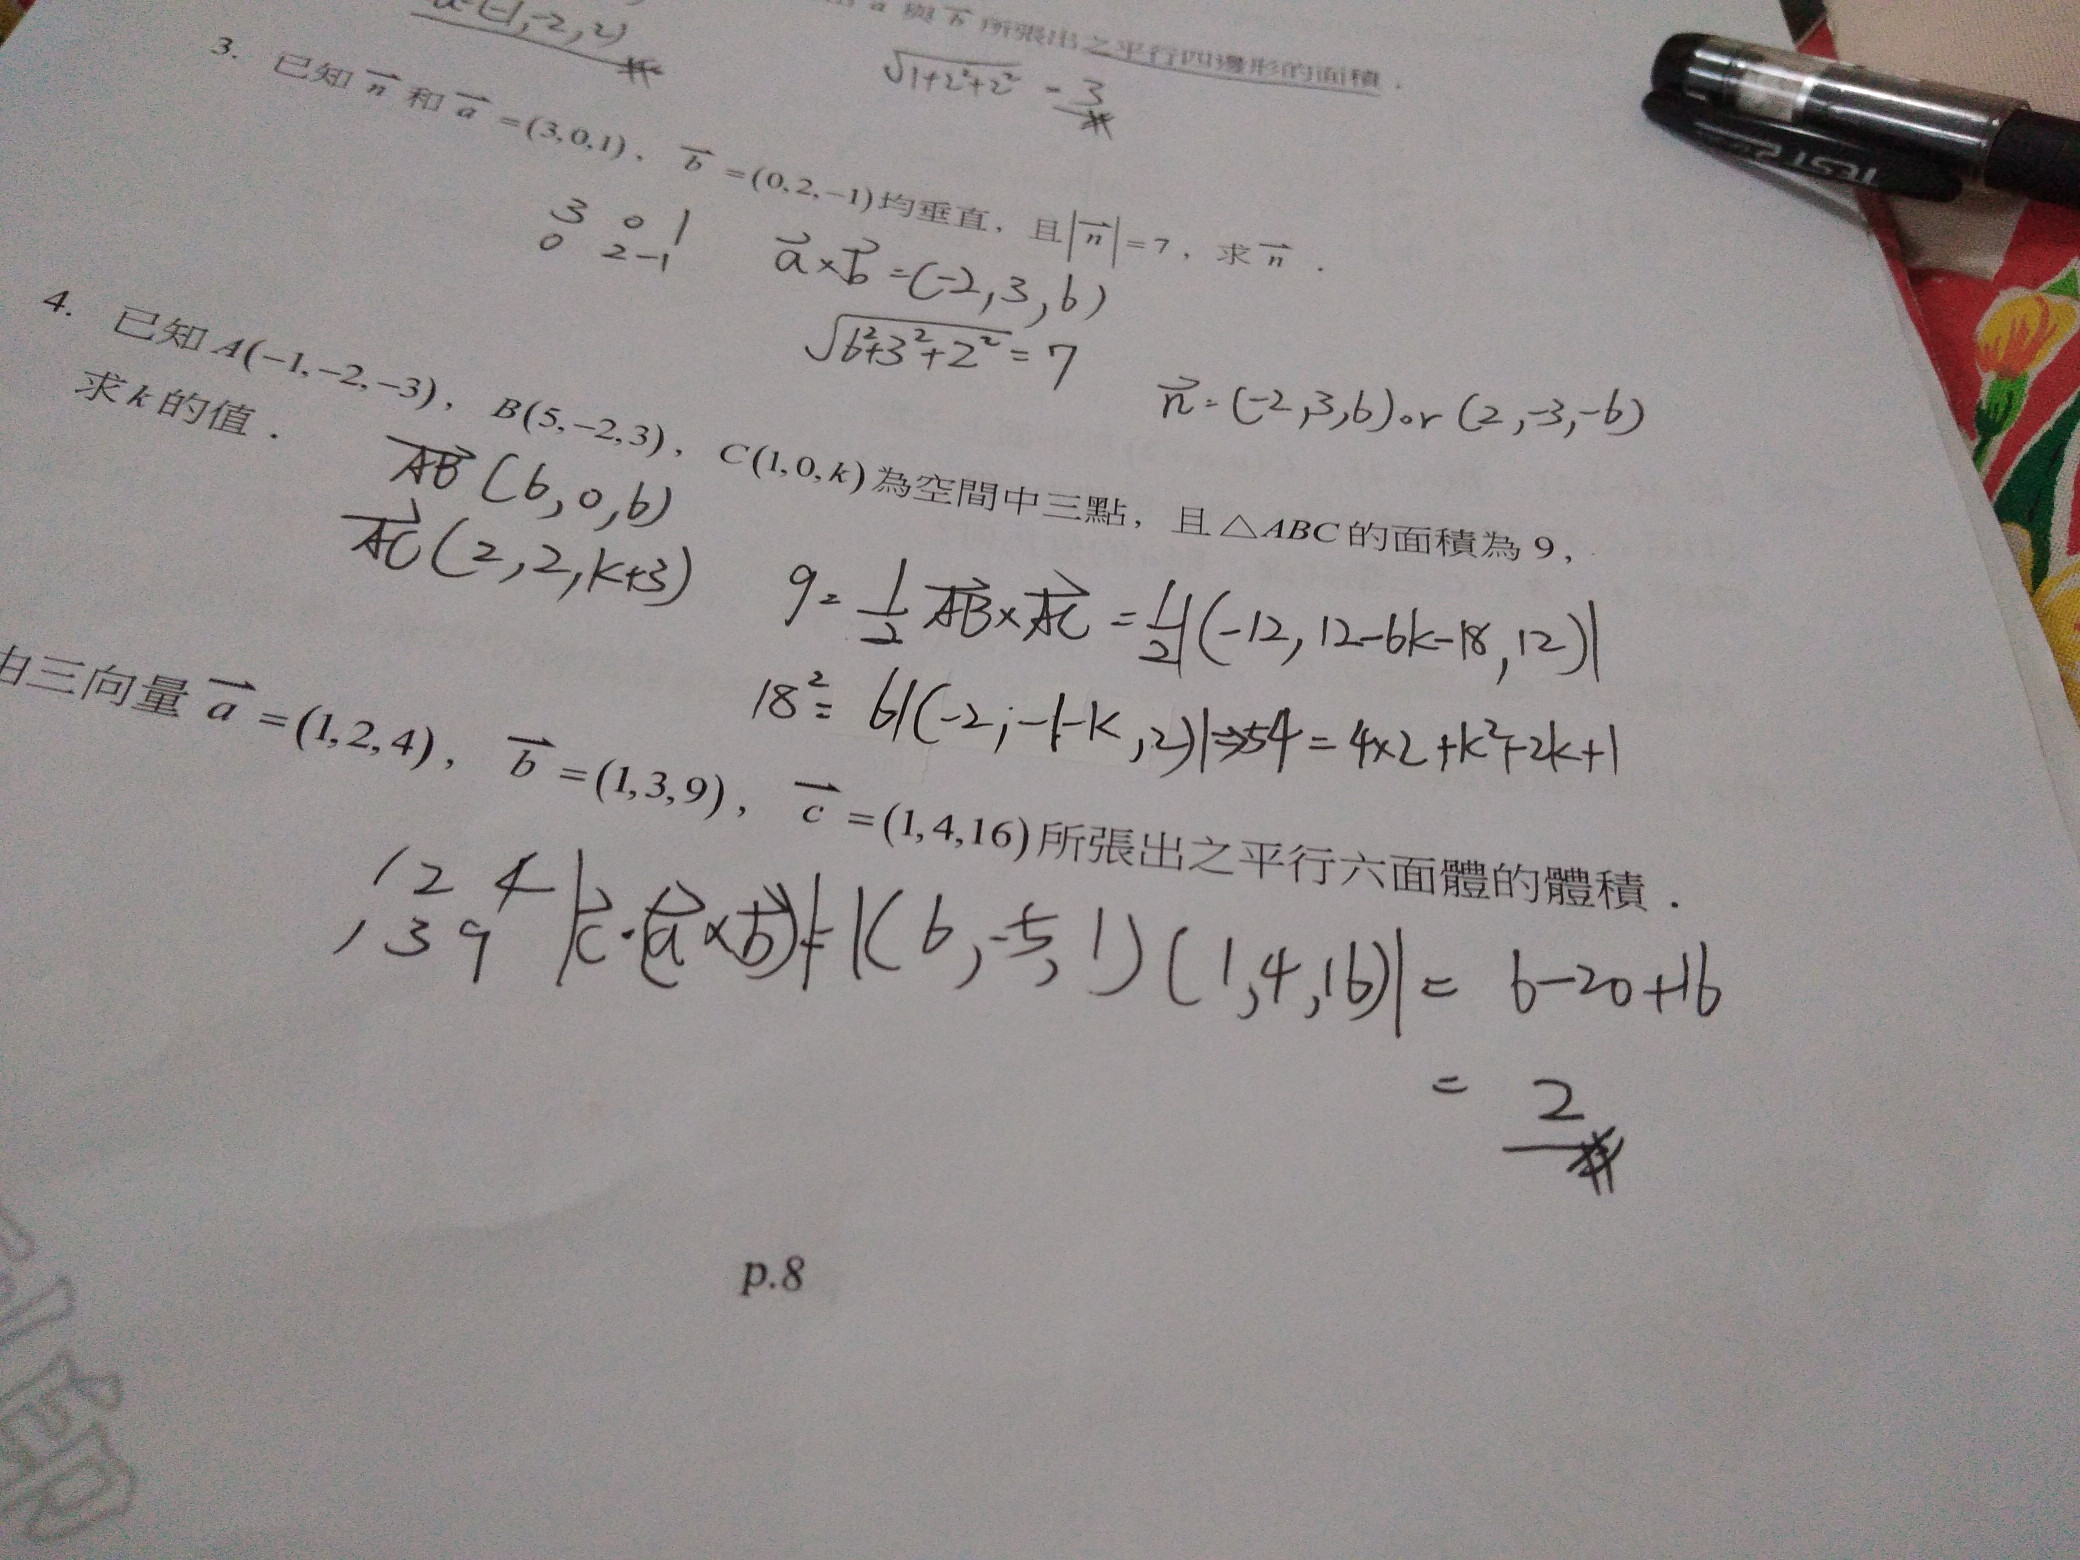 (-1,-2,2)
與 b 所張出之平行四邊形的面積.
√1+2²+2² = 3
3. 已知 n 和 a =(3,0,1), b =(0,2,-1)均垂直,且|n|=7,求 n .
3 0 1
0 2 -1
a×b =(-2,3,6)
√6²+3²+2² = 7
n=(-2,3,6)or(2,-3,-6)
4. 已知 A(-1,-2,-3), B(5,-2,3), C(1,0,k)為空間中三點,且△ABC的面積為9,
求k的值.
AB (6,0,6)
AC (2,2,k+3)
9= 1/2 AB×AC = 1/2|(-12,12-6k-18,12)|
18²= 6|(-2,-1-k,2)|⇒54=4×2+k²+2k+1
由三向量 a =(1,2,4), b =(1,3,9), c =(1,4,16)所張出之平行六面體的體積.
1 2 4
1 3 9
|c·(a×b)|=|(6,-5,1)(1,4,16)|= 6-20+16
= 2
p.8